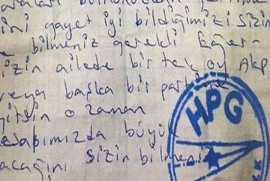 ini gayet iyi bildiğimizi sizin
bilmeniz gerekli Eğer
izin ailede bir tek oy Akp
veya başka bir
gitsin o zaman
hesabımızda büyük
acağını sizin
HPG